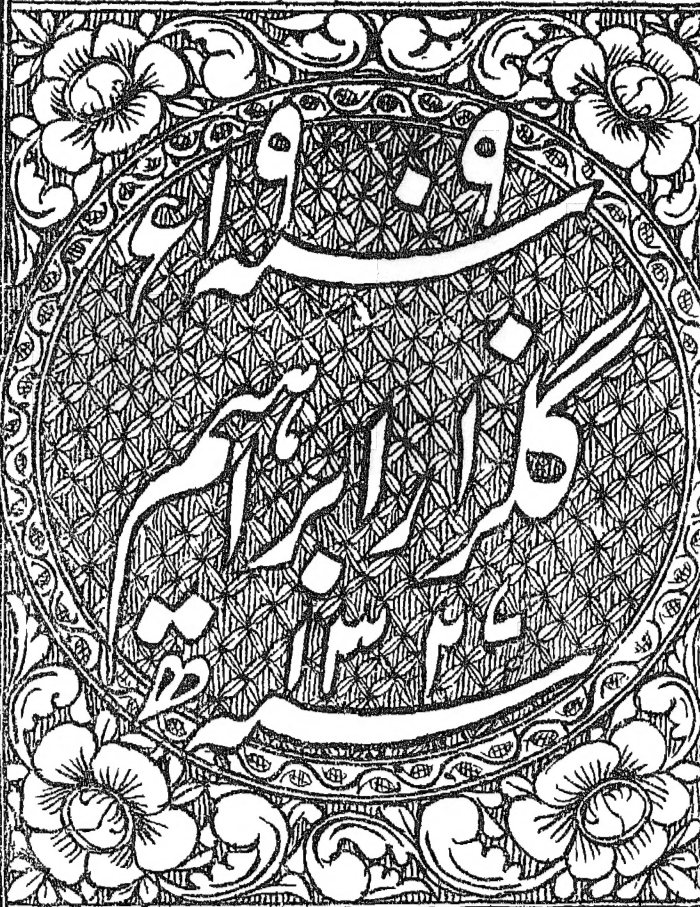 سنہ ۱۹۰۹ء
گلزار ابراہیم
سنہ ۱۳۲۷ھ